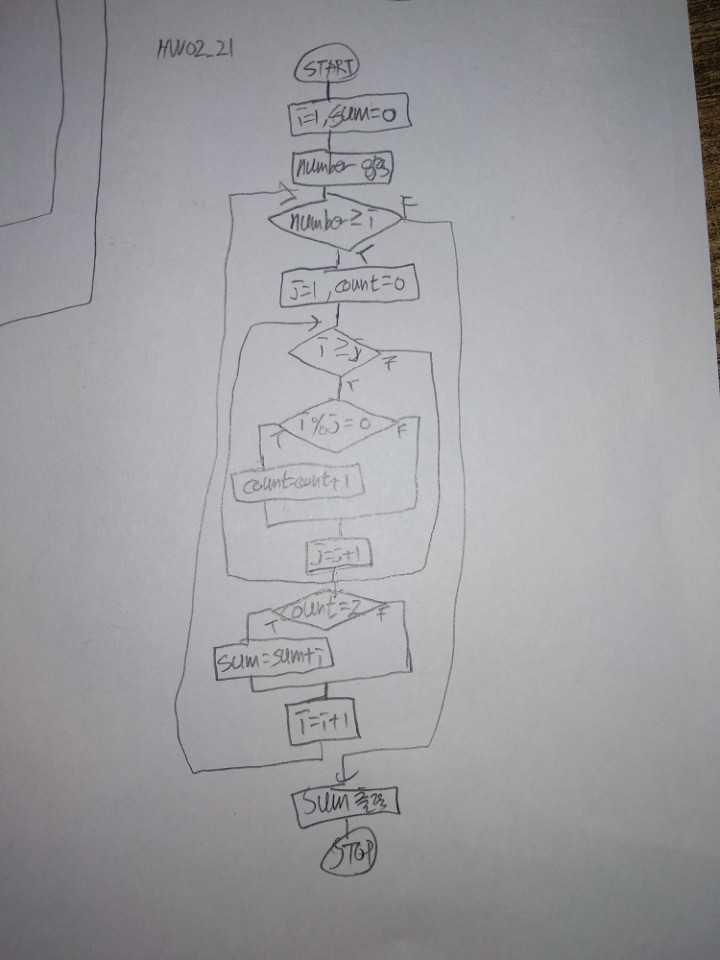 HW02_21
START
i=1, sum=0
number 입력
number≥i
F
T
j=1, count=0
i≥j
F
T
i%j=0
T
F
count=count+1
j=j+1
count=2
T
F
sum=sum+i
i=i+1
sum 출력
STOP